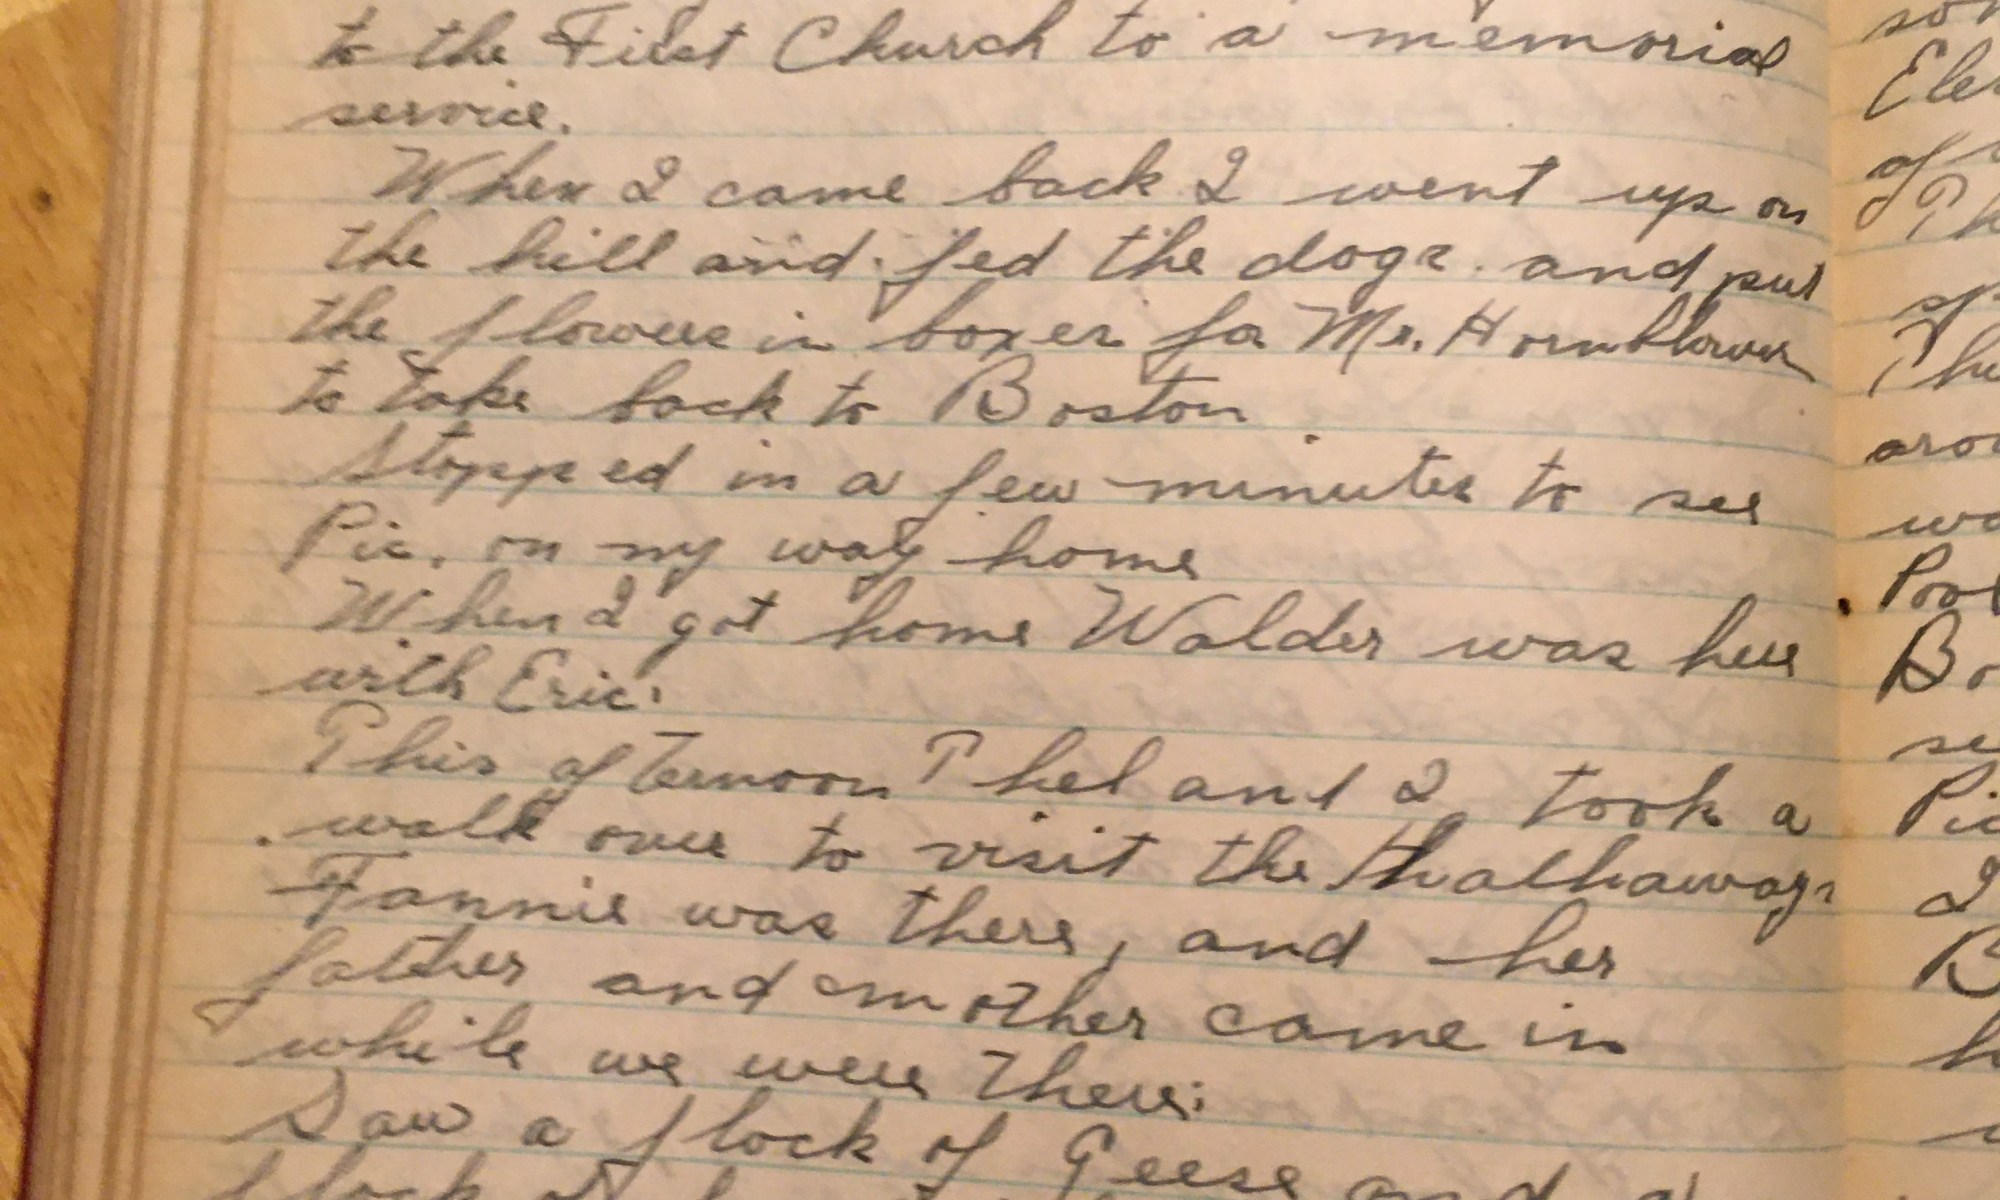 to the First Church to a memorial
service.
When I came back I went up on
the hill and fed the dogs. and put
the flowers in boxes for Mr. Hornblower
to take back to Boston
Stopped in a few minutes to see
Pic. on my way home
When I got home Walder was here
with Eric.
This afternoon Thel and I took a
walk over to visit the Hathaways
Fannie was there, and her
father and mother came in
while we were there.
Saw a flock of Geese and a
flock of
Pic
I
B